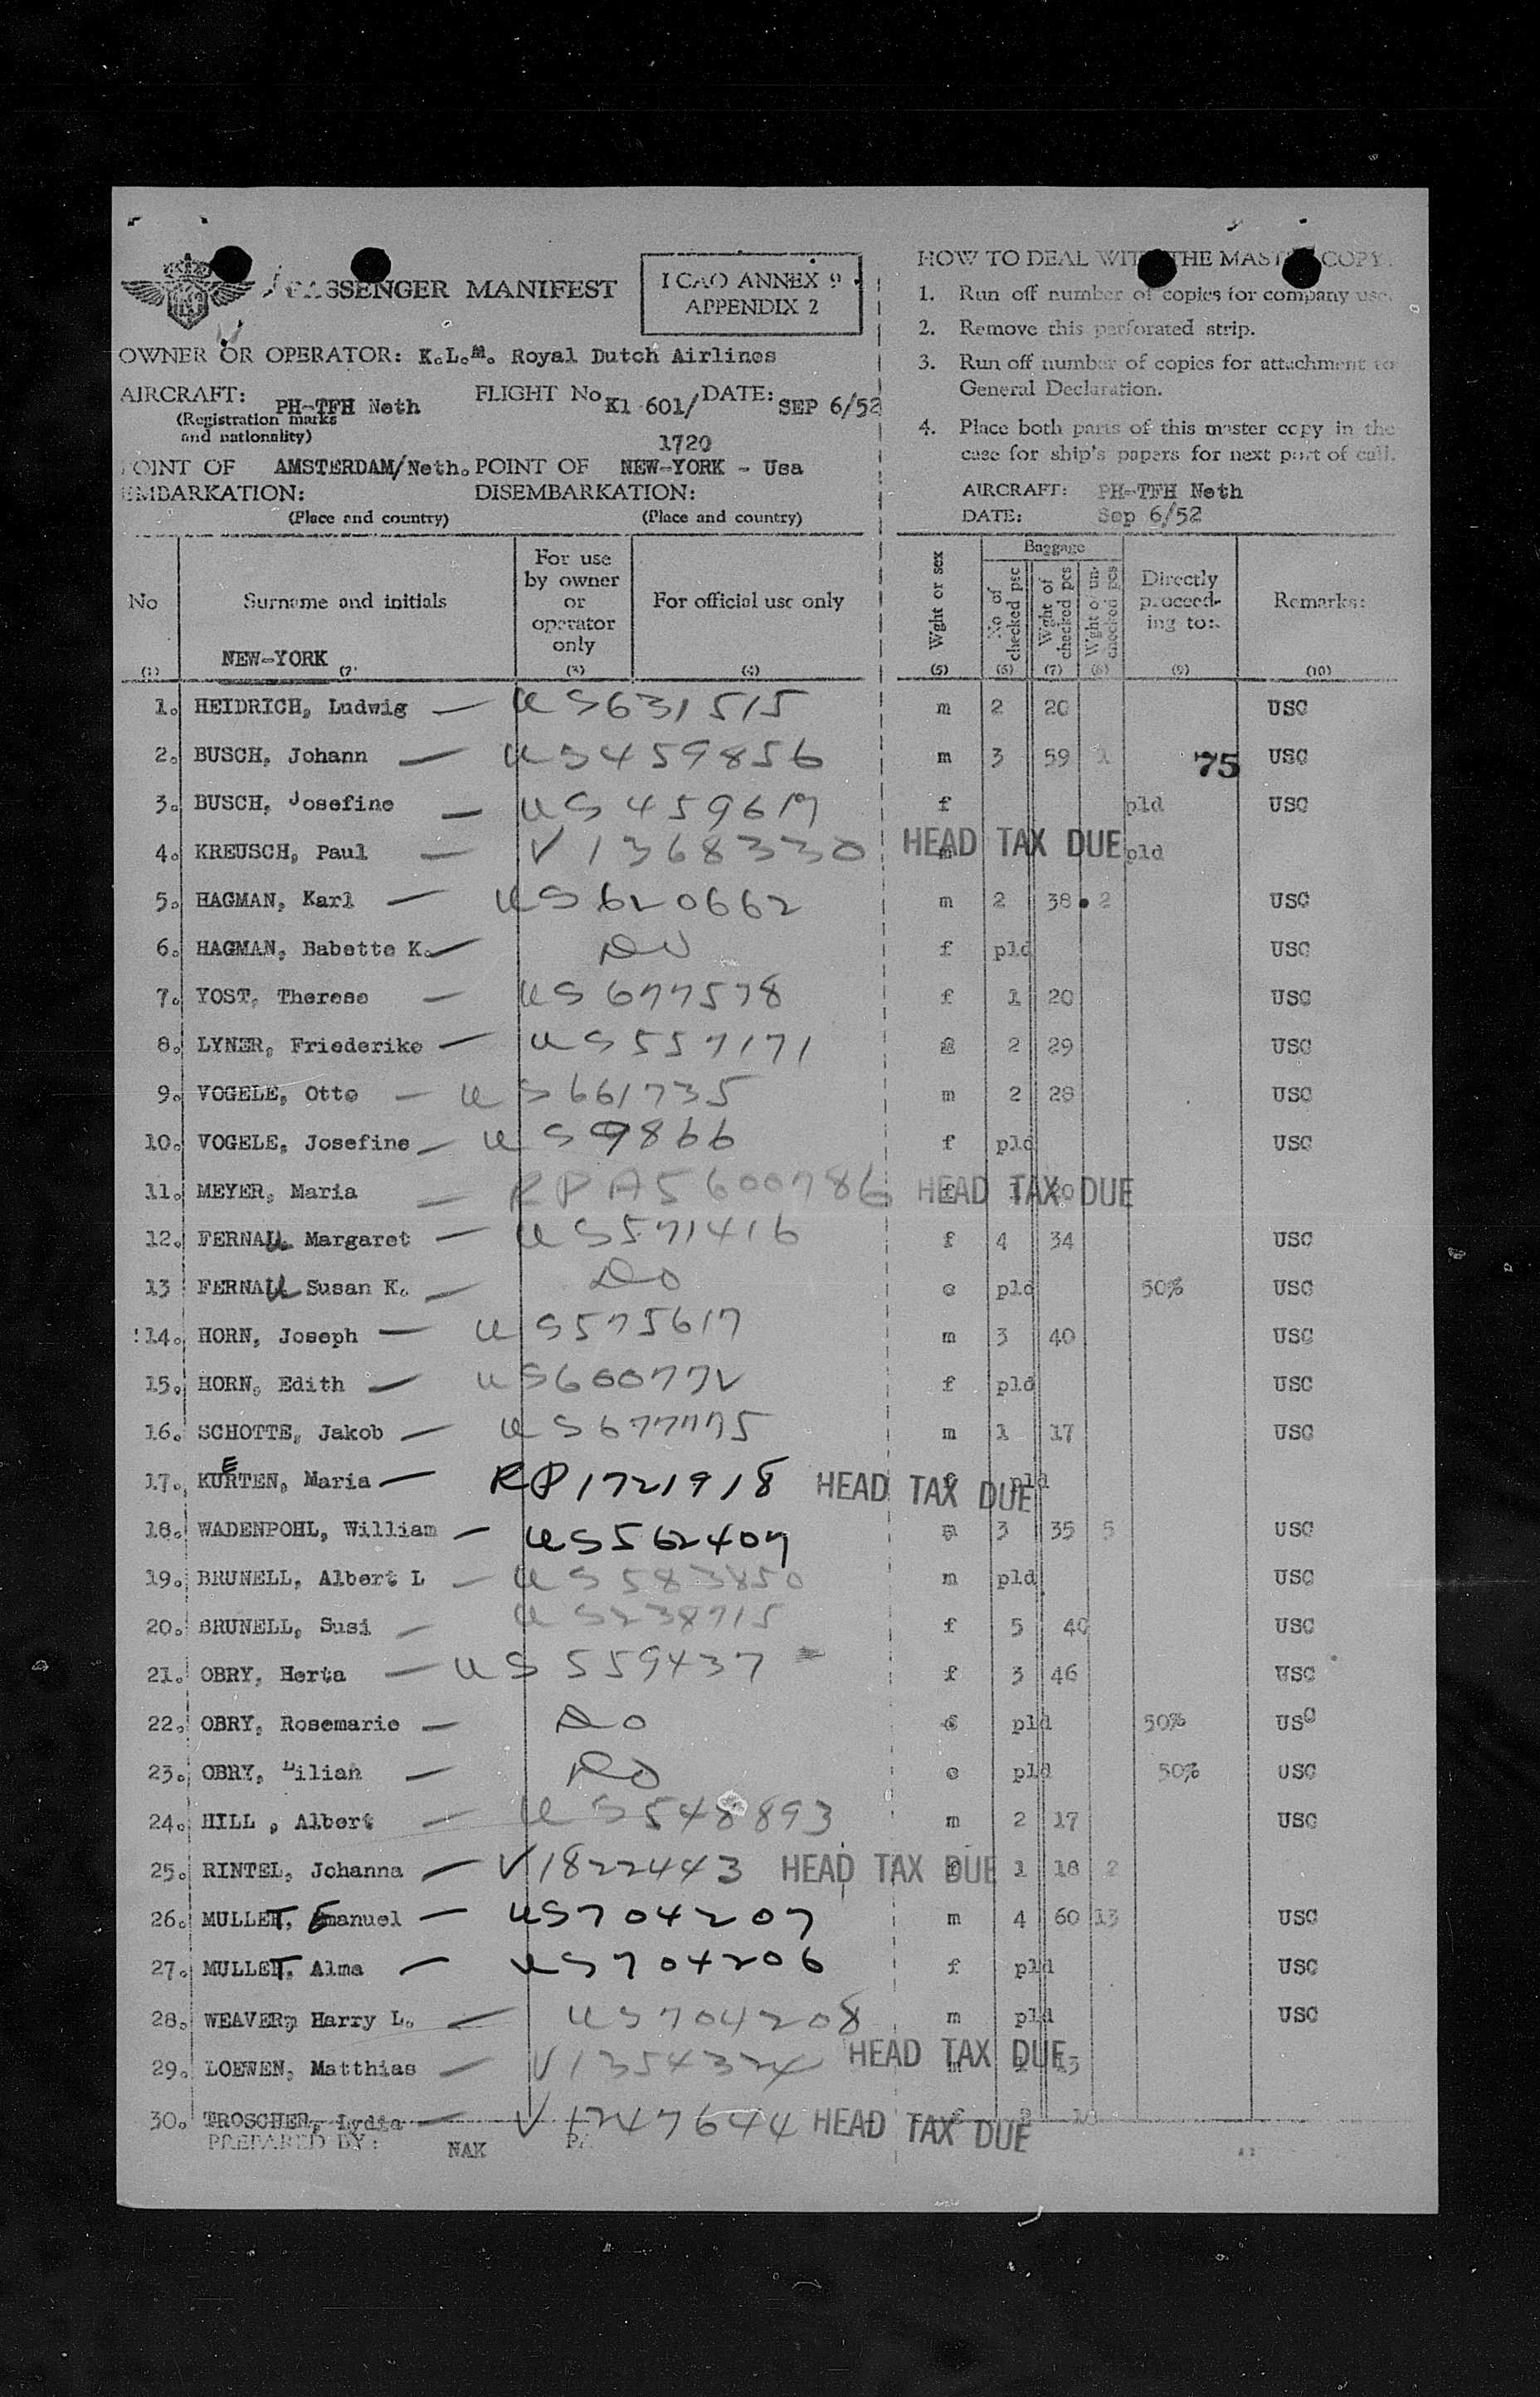 PASSENGER MANIFEST
I CAO ANNEX 9
APPENDIX 2
OWNER OR OPERATOR: K.L.M. Royal Dutch Airlines
AIRCRAFT: PH-TFH Neth FLIGHT No Kl 601/ DATE: SEP 6/52
(Registration marks
and nationality)
1720
POINT OF AMSTERDAM/Neth. POINT OF NEW-YORK - Usa
EMBARKATION: DISEMBARKATION:
(Place and country) (Place and country)
HOW TO DEAL WITH THE MASTER COPY.
1. Run off number of copies for company use.
2. Remove this perforated strip.
3. Run off number of copies for attachment to
General Declaration.
4. Place both parts of this master copy in the
case for ship's papers for next port of call.
AIRCRAFT: PH-TFH Neth
DATE: Sep 6/52
No
Surname and initials
For use
by owner
or
operator
only
For official use only
Wght or sex
Baggage
No of
checked psc
Wght of
checked pcs
Wght of un-
checked pcs
Directly
proceed-
ing to:
Remarks:
NEW-YORK
(1) (2) (3) (4) (5) (6) (7) (8) (9) (10)
1. HEIDRICH, Ludwig — US631515 m 2 20 USC
2. BUSCH, Johann — US459856 m 3 59 1 75 USC
3. BUSCH, Josefine — US459619 f pld USC
4. KREUSCH, Paul — V1368330 HEAD TAX DUE m pld
5. HAGMAN, Karl — US620662 m 2 38 2 USC
6. HAGMAN, Babette K. — DO f pld USC
7. YOST, Therese — US677578 f 1 20 USC
8. LYNER, Friederike — US557171 2 29 USC
9. VOGELE, Otto — US661735 m 2 28 USC
10. VOGELE, Josefine — US9866 f pld USC
11. MEYER, Maria — RPA5600786 HEAD TAX DUE f
12. FERNAU Margaret — US571416 f 4 34 USC
13 FERNAU Susan K. — DO c pld 50% USC
14. HORN, Joseph — US575617 m 3 40 USC
15. HORN, Edith — US600772 f pld USC
16. SCHOTTE, Jakob — US677775 m 1 17 USC
17. KUERTEN, Maria — RP1721918 HEAD TAX DUE f pld
18. WADENPOHL, William — US562407 m 3 35 5 USC
19. BRUNELL, Albert L — US583850 m pld USC
20. BRUNELL, Susi — US238715 f 5 40 USC
21. OBRY, Herta — US559437 f 3 46 USC
22. OBRY, Rosemarie — DO pld 50% USC
23. OBRY, Lilian — DO c pld 50% USC
24. HILL , Albert — US548893 m 2 17 USC
25. RINTEL, Johanna — V1822443 HEAD TAX DUE f 1 18 2
26. MULLET, Emanuel — US704207 m 4 60 13 USC
27. MULLET, Alma — US704206 f pld USC
28. WEAVER, Harry L. — US704208 m pld USC
29. LOEWEN, Matthias — V1354324 HEAD TAX DUE m
30. TROSCHER, Lydia — V1247644 HEAD TAX DUE f 2
PREPARED BY: NAK